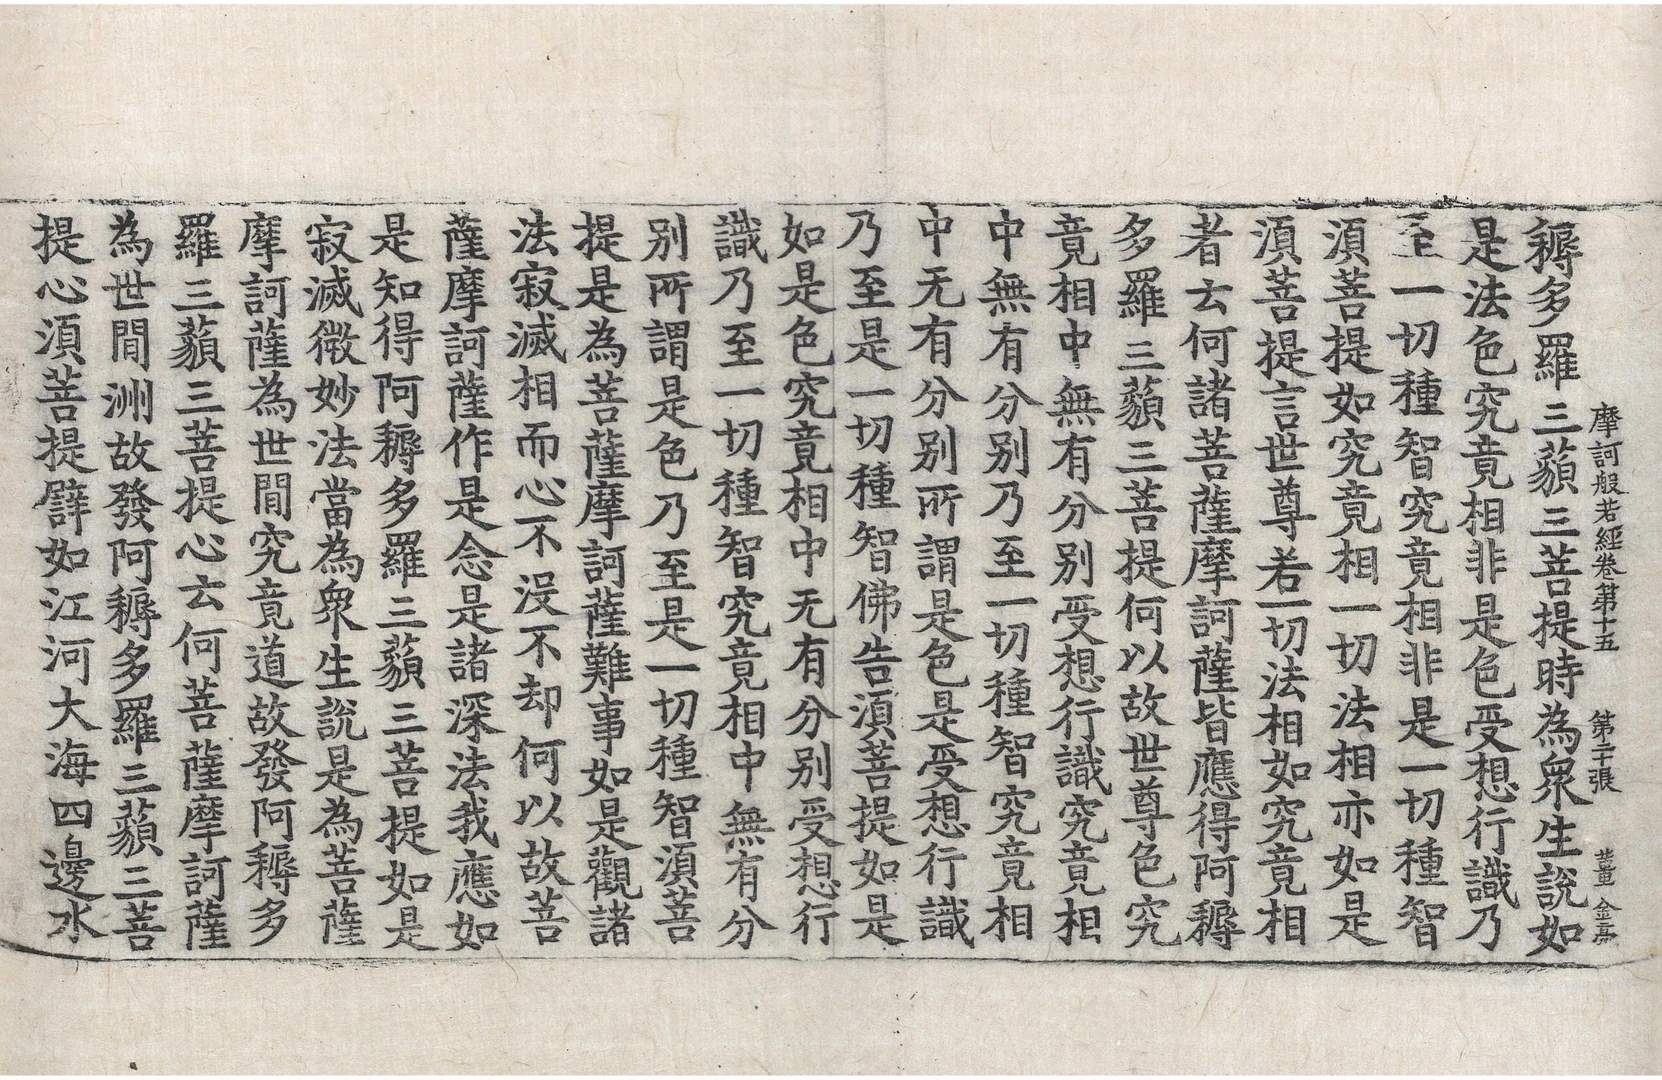 摩訶般若經卷第十五 第二十張 董 金
耨多羅三藐三菩提時為衆生說如
是法色究竟相非是色受想行識乃
至一切種智究竟相非是一切種智
湏菩提如究竟相一切法相亦如是
湏菩提言世尊若一切法相如究竟相
者云何諸菩薩摩訶薩皆應得阿耨
多羅三藐三菩提何以故世尊色究
竟相中無有分别受想行識究竟相
中無有分别乃至一切種智究竟相
中无有分别所謂是色是受想行識
乃至是一切種智佛告湏菩提如是
如是色究竟相中无有分别受想行
識乃至一切種智究竟相中無有分
别所謂是色乃至是一切種智湏菩
提是為菩薩摩訶薩難事如是觀諸
法寂滅相而心不没不却何以故菩
薩摩訶薩作是念是諸深法我應如
是知得阿耨多羅三藐三菩提如是
寂滅微妙法當為衆生說是為菩薩
摩訶薩為世間究竟道故發阿耨多
羅三藐三菩提心云何菩薩摩訶薩
為世間洲故發阿耨多羅三藐三菩
提心湏菩提譬如江河大海四邊水